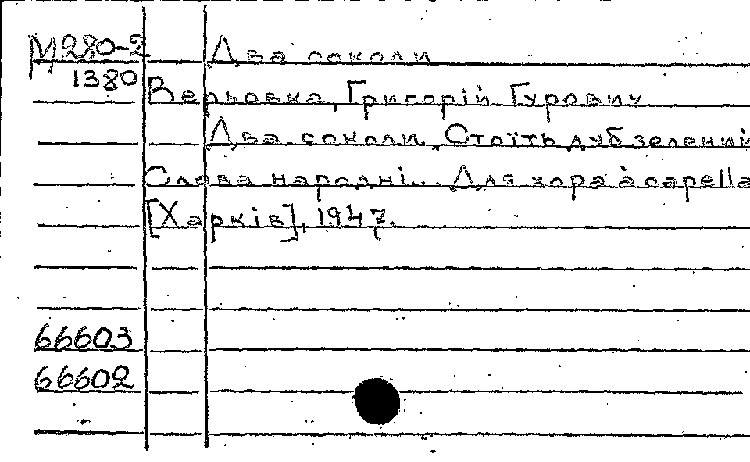 М280-2 Два соколи
1380 Верьовка, Григорій Гурович
Два соколи. Стоїть дуб зелений
Слова народні. Для хора à capella
[Харків], 1947.
66603
66602